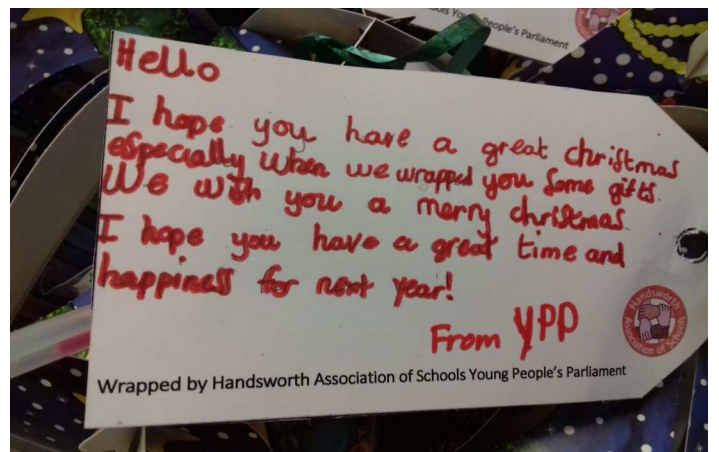 ols Young People's Parliament
Hello
I hope you have a great christmas
especially when we wrapped you some gifts.
We wish you a merry christmas
I hope you have a great time and
happiness for next year!
From YPP
Handsworth
Association of Schools
Wrapped by Handsworth Association of Schools Young People's Parliament